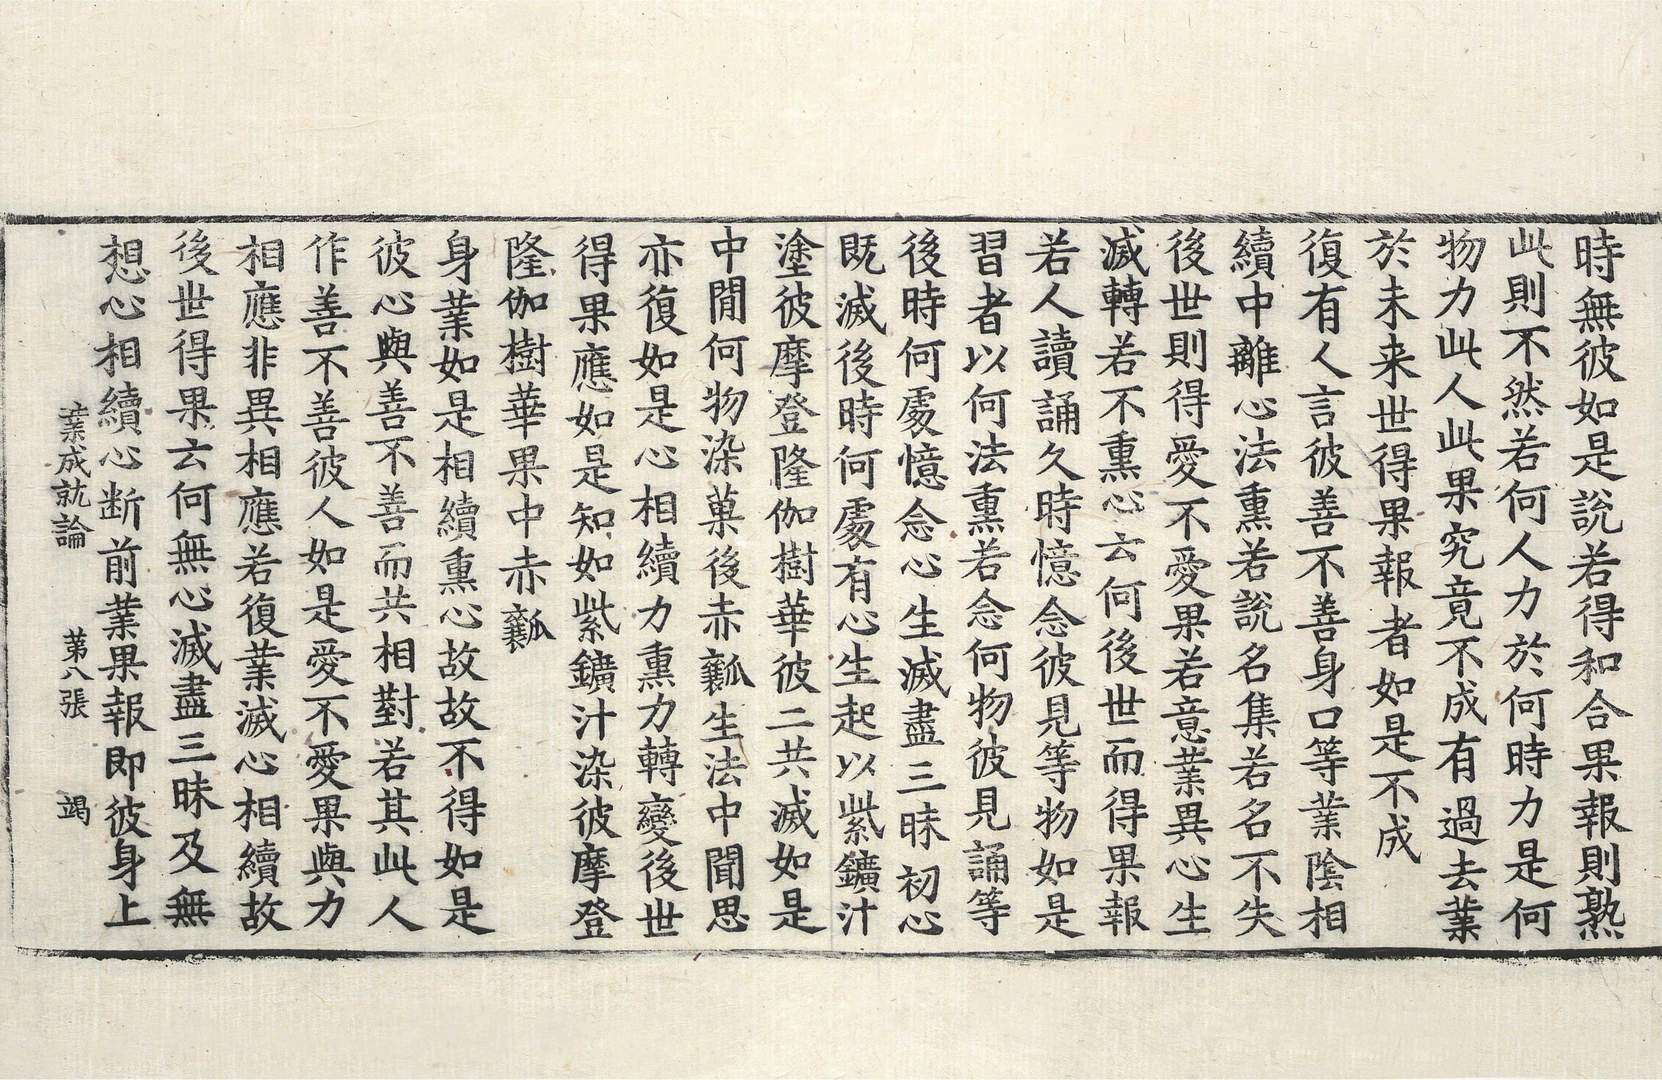 時無彼如是說若得和合果報則熟
此則不然若何人力於何時力是何
物力此人此果究竟不成有過去業
於未来世得果報者如是不成
復有人言彼善不善身口等業陰相
續中離心法熏若說名集若名不失
後世則得愛不愛果若意業異心生
滅轉若不熏心云何後世而得果報
若人讀誦久時憶念彼見等物如是
習者以何法熏若念何物彼見誦等
後時何處憶念心生滅盡三昧初心
既滅後時何處有心生起以紫鑛汁
塗彼摩登隆伽樹華彼二共滅如是
中間何物染菓後赤瓤生法中聞思
亦復如是心相續力熏力轉變後世
得果應如是知如紫鑛汁染彼摩登
隆伽樹華果中赤瓤
身業如是相續熏心故故不得如是
彼心與善不善而共相對若其此人
作善不善彼人如是愛不愛果與力
相應非異相應若復業滅心相續故
後世得果云何無心滅盡三昧及無
想心相續心断前業果報即彼身上
業成就論 第八張 竭